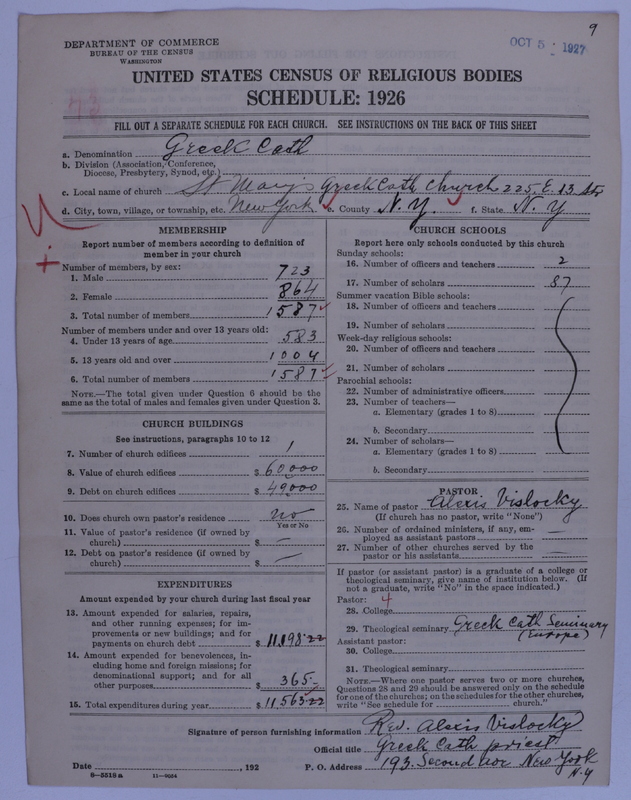 9
DEPARTMENT OF COMMERCE
BUREAU OF THE CENSUS
WASHINGTON
OCT 5 1927
UNITED STATES CENSUS OF RELIGIOUS BODIES
SCHEDULE: 1926
FILL OUT A SEPARATE SCHEDULE FOR EACH CHURCH. SEE INSTRUCTIONS ON THE BACK OF THIS SHEET
a. Denomination Greek Cath
b. Division (Association, Conference,
Diocese, Presbytery, Synod, etc.)
c. Local name of church St Marys Greek Cath Church 225. E. 13 Str
d. City, town, village, or township, etc. New York e. County N. Y. f. State N. Y
MEMBERSHIP
Report number of members according to definition of
member in your church
Number of members, by sex:
1. Male 723
2. Female 864
3. Total number of members 1587
Number of members under and over 13 years old:
4. Under 13 years of age 583
5. 13 years old and over 1004
6. Total number of members 1587
NOTE.—The total given under Question 6 should be the
same as the total of males and females given under Question 3.
CHURCH BUILDINGS
See instructions, paragraphs 10 to 12
7. Number of church edifices 1
8. Value of church edifices $ 60,000
9. Debt on church edifices $ 49000
10. Does church own pastor's residence no
Yes or No
11. Value of pastor's residence (if owned by
church) $ —
12. Debt on pastor's residence (if owned by
church) $ —
EXPENDITURES
Amount expended by your church during last fiscal year
13. Amount expended for salaries, repairs,
and other running expenses; for im-
provements or new buildings; and for
payments on church debt $ 11,198.22
14. Amount expended for benevolences, in-
cluding home and foreign missions; for
denominational support; and for all
other purposes $ 365-
15. Total expenditures during year $ 11,563.22
CHURCH SCHOOLS
Report here only schools conducted by this church
Sunday schools:
16. Number of officers and teachers 2
17. Number of scholars 87
Summer vacation Bible schools:
18. Number of officers and teachers
19. Number of scholars
Week-day religious schools:
20. Number of officers and teachers
21. Number of scholars
Parochial schools:
22. Number of administrative officers
23. Number of teachers—
a. Elementary (grades 1 to 8)
b. Secondary
24. Number of scholars—
a. Elementary (grades 1 to 8)
b. Secondary
PASTOR
25. Name of pastor Alexis Vislocky
(If church has no pastor, write "None")
26. Number of ordained ministers, if any, em-
ployed as assistant pastors —
27. Number of other churches served by the
pastor or his assistants —
If pastor (or assistant pastor) is a graduate of a college or
theological seminary, give name of institution below. (If
not a graduate, write "No" in the space indicated.)
Pastor: 4
28. College
29. Theological seminary Greek Cath Seminary
(Europe)
Assistant pastor:
30. College
31. Theological seminary
NOTE.—Where one pastor serves two or more churches,
Questions 28 and 29 should be answered only on the schedule
for one of the churches; on the schedules for the other churches,
write "See schedule for church."
Signature of person furnishing information Rev. Alexis Vislocky
Official title Greek Cath priest
Date , 192 P. O. Address 193. Second ave New York
N.Y
8—5518a 11—9034